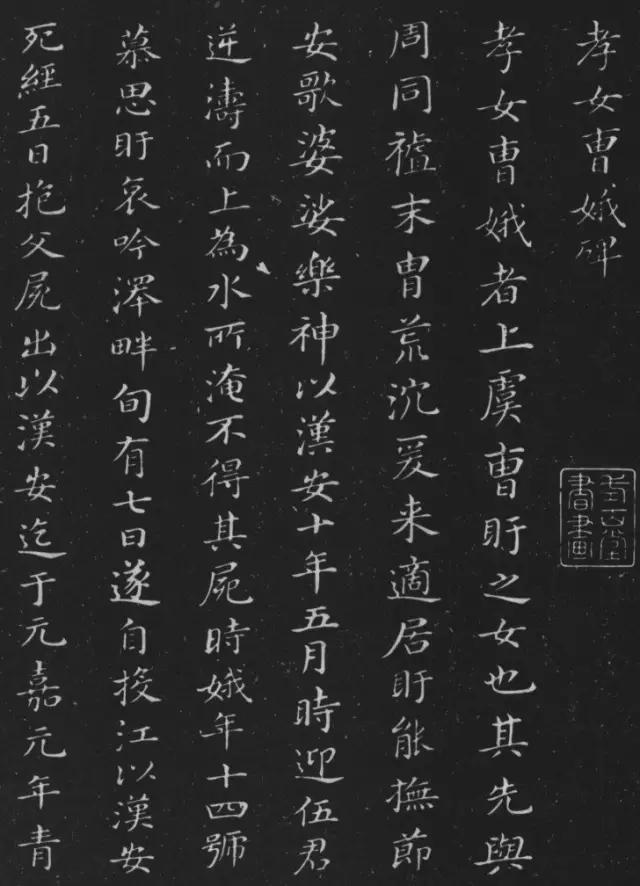 孝女曹娥碑
孝女曹娥者上虞曹盱之女也其先與
周同禗末胄荒沉爰来適居盱能撫節
安歌婆娑樂神以漢安十年五月時迎伍君
逆濤而上為水所淹不得其屍時娥年十四號
慕思盱哀吟澤畔旬有七日遂自投江以漢安
死經五日抱父屍出以漢安迄于元嘉元年青
書畫